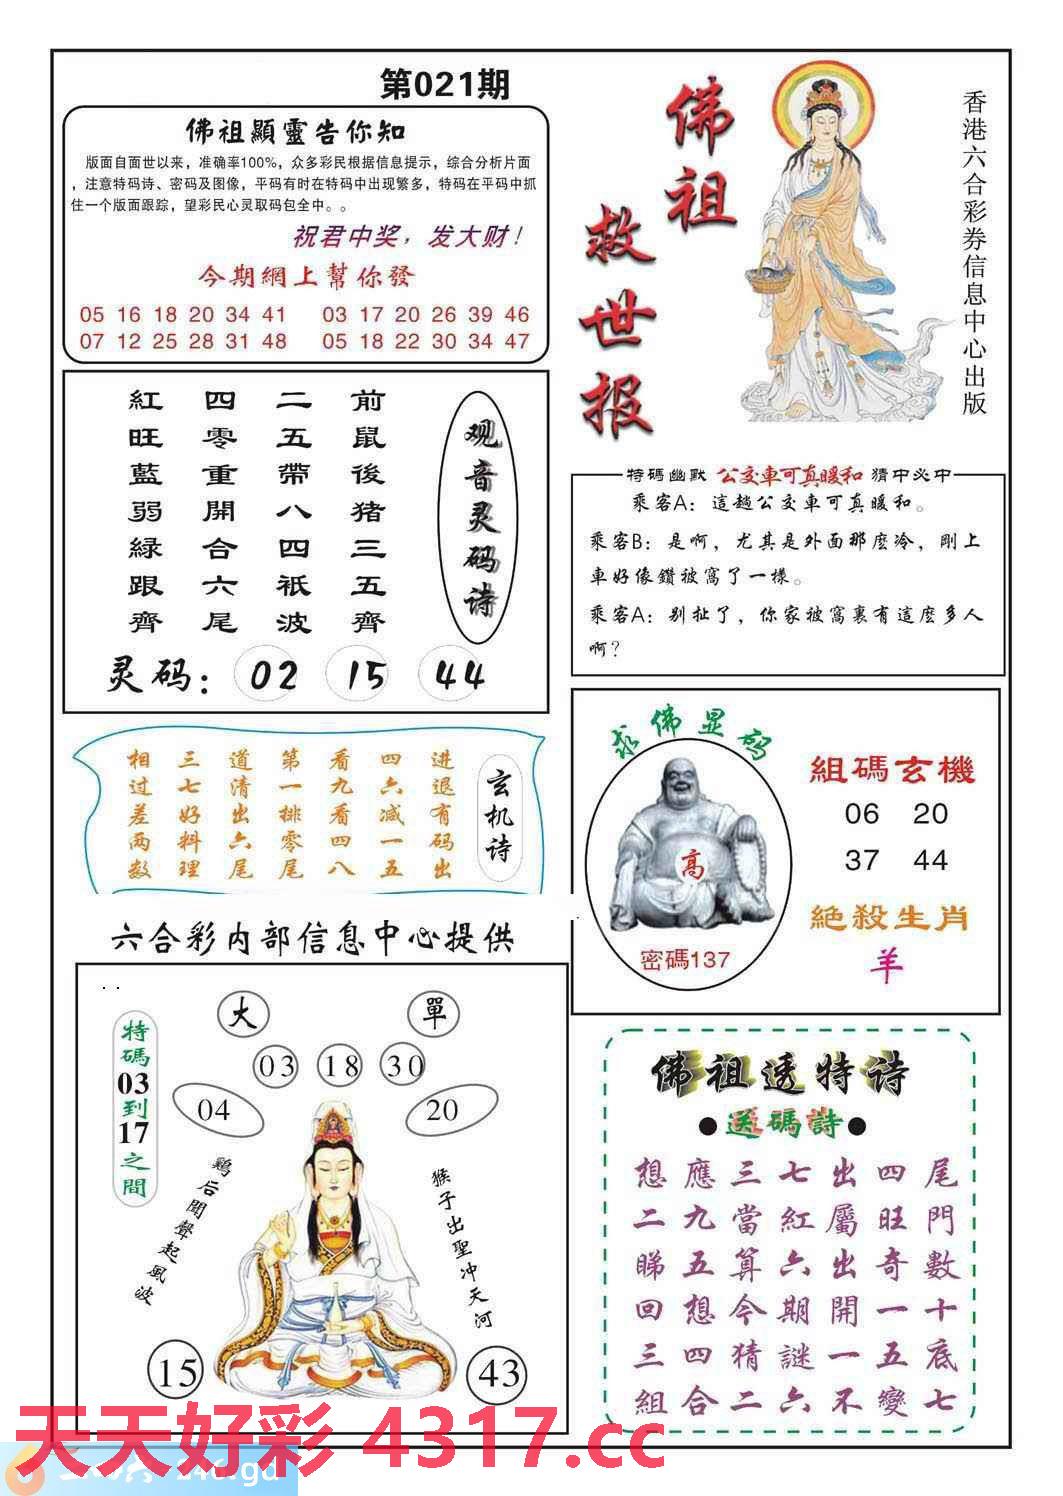 第021期
佛祖顯靈告你知
版面自面世以来，准确率100%，众多彩民根据信息提示，综合分析片面
，注意特码诗、密码及图像，平码有时在特码中出现繁多，特码在平码中抓
住一个版面跟踪，望彩民心灵取码包全中。。
祝君中奖，发大财！
今期網上幫你發
05 16 18 20 34 41 03 17 20 26 39 46
07 12 25 28 31 48 05 18 22 30 34 47
佛祖
救世报
香港六合彩券信息中心出版
观音灵码诗
前鼠後猪三五齊
二五帶八四祇波
四零重開合六尾
紅旺藍弱緑跟齊
灵码： 02 15 44
特碼幽默 公交車可真暖和 猜中必中
乘客A：這趟公交車可真暖和。
乘客B：是啊，尤其是外面那麽冷，剛上
車好像鑽被窩了一樣。
乘客A：别扯了，你家被窩裏有這麽多人
啊？
玄机诗
进退有码出
四六减一五
看九看四八
第一排零尾
道清出六尾
三七好料理
相过差两数
求佛显码
高
密碼137
組碼玄機
06 20
37 44
絕殺生肖
羊
六合彩内部信息中心提供
大 單
03 18 30
04 20
特碼03到17之間
鷄后聞聲起風波
猴子出聖冲天河
15 43
佛祖透特诗
●送碼詩●
想應三七出四尾
二九當紅屬旺門
睇五算六出奇數
回想今期開一十
三四猜謎一五底
組合二六不變七
天天好彩 4317.cc
246.gd